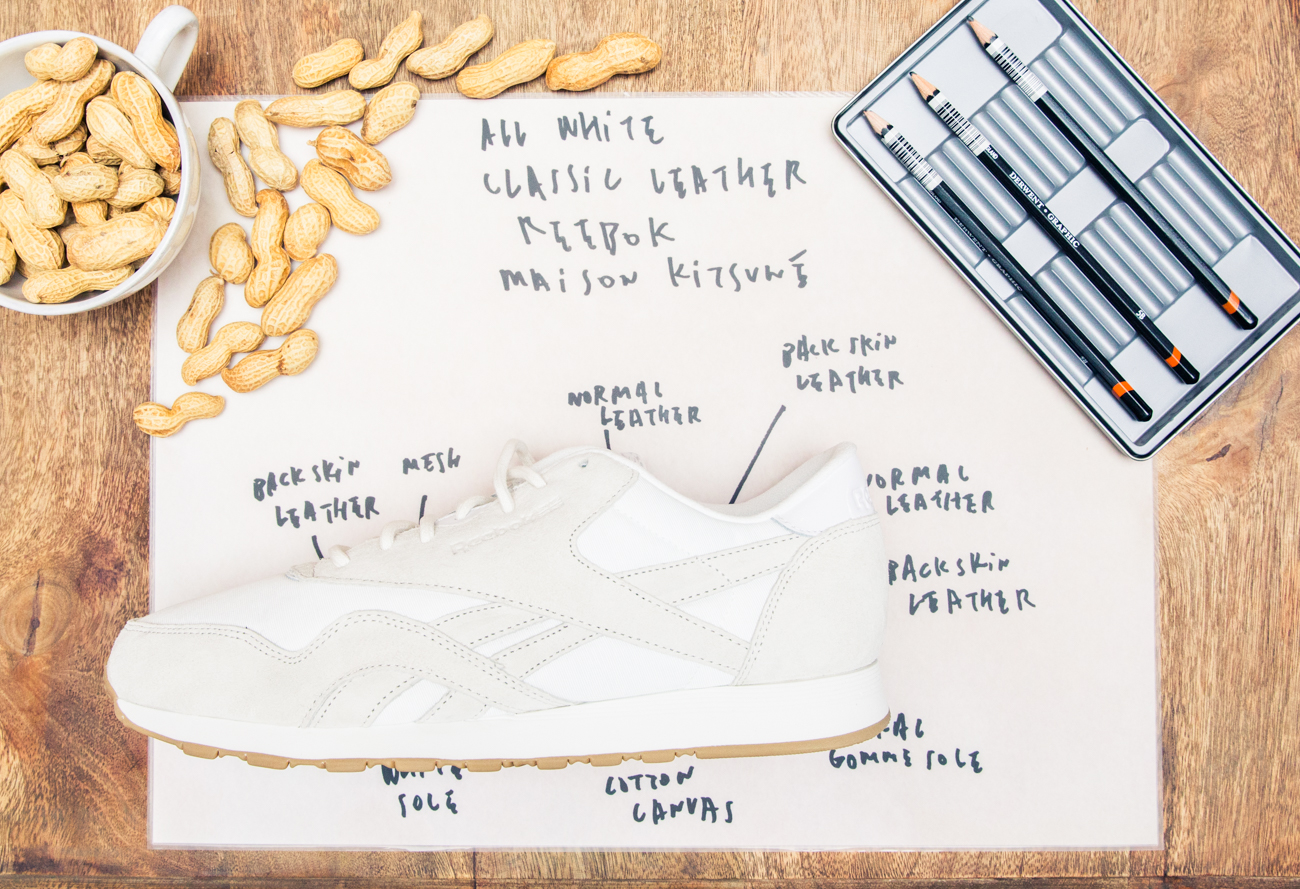 ALL WHITE
CLASSIC LEATHER
REEBOK
MAISON KITSUNÉ
BACK SKIN
LEATHER
NORMAL
LEATHER
BACK SKIN
LEATHER
MESH
NORMAL
LEATHER
BACK SKIN
LEATHER
GOMME SOLE
WHITE
SOLE
COTTON
CANVAS
DERWENT • GRAPHIC
5B